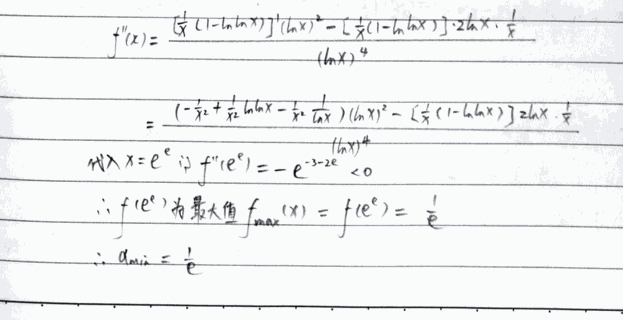 f''(x) = \frac{[\frac{1}{x}(1-\ln\ln x)]'(\ln x)^2 - [\frac{1}{x}(1-\ln\ln x)]·2\ln x·\frac{1}{x}}{(\ln x)^4}
= \frac{(-\frac{1}{x^2}+\frac{1}{x^2}\ln\ln x-\frac{1}{x^2}\frac{1}{\ln x})(\ln x)^2 - [\frac{1}{x}(1-\ln\ln x)]2\ln x·\frac{1}{x}}{(\ln x)^4}
代入 x=e^e 得 f''(e^e) = -e^{-3-2e} <0
∴ f(e^e) 为最大值 f_{max}(x) = f(e^e) = \frac{1}{e}
∴ a_{min} = \frac{1}{e}